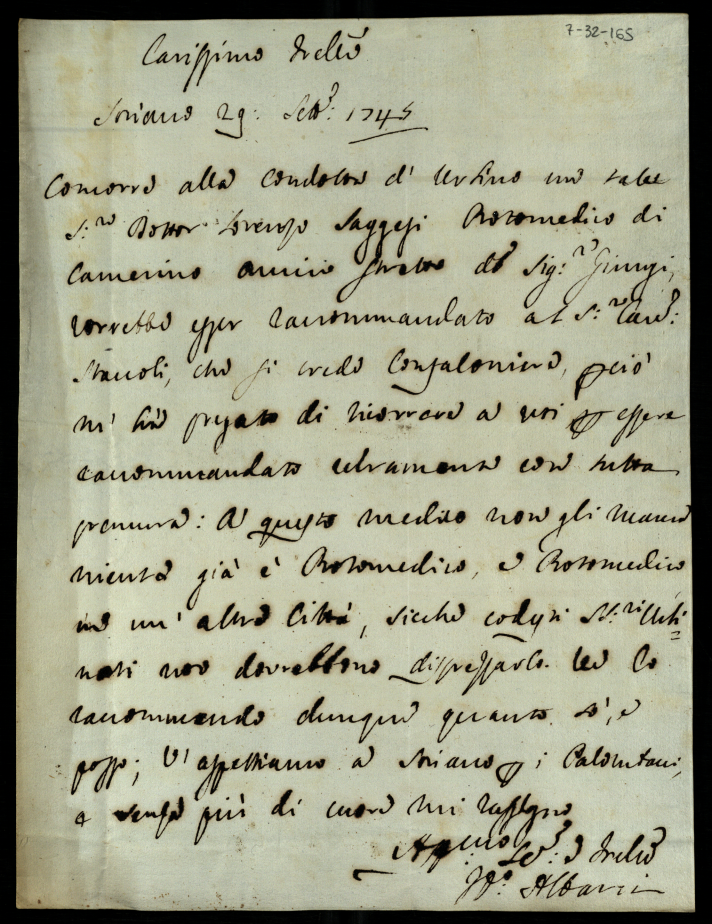 7-32-165
Carissimo Frello
Soriano 29: Sett.e 1745
Concorre alla Condotta d'Urbino un tale
S.re Dottor Lorenzo Saggesi Protomedico di
Camerino amico stretto del Sig.re
vorrebbe esser raccommandato al S.re Card:
Staccoli, che si crede Confaloniere, perciò
m'hà pregato di ricorrere a voi per essere
raccommandato veramente con tutta
premura: A questo medico non gli manca
niente già è Protomedico, e Protomedico
in un'altra Città, sicche codesti SS.ri Urbi=
nati non dovrebbono disprezzarlo. Ve lo
raccommando dunque quanto sò, e
posso; V'aspettiamo a Soriano per i
e senza più di cuore mi rassegno
Aff.mo Se.e e Frello
Albani